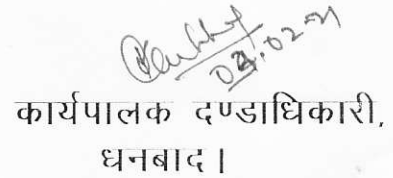 02.02-21
कार्यपालक दण्डाधिकारी,
धनबाद।